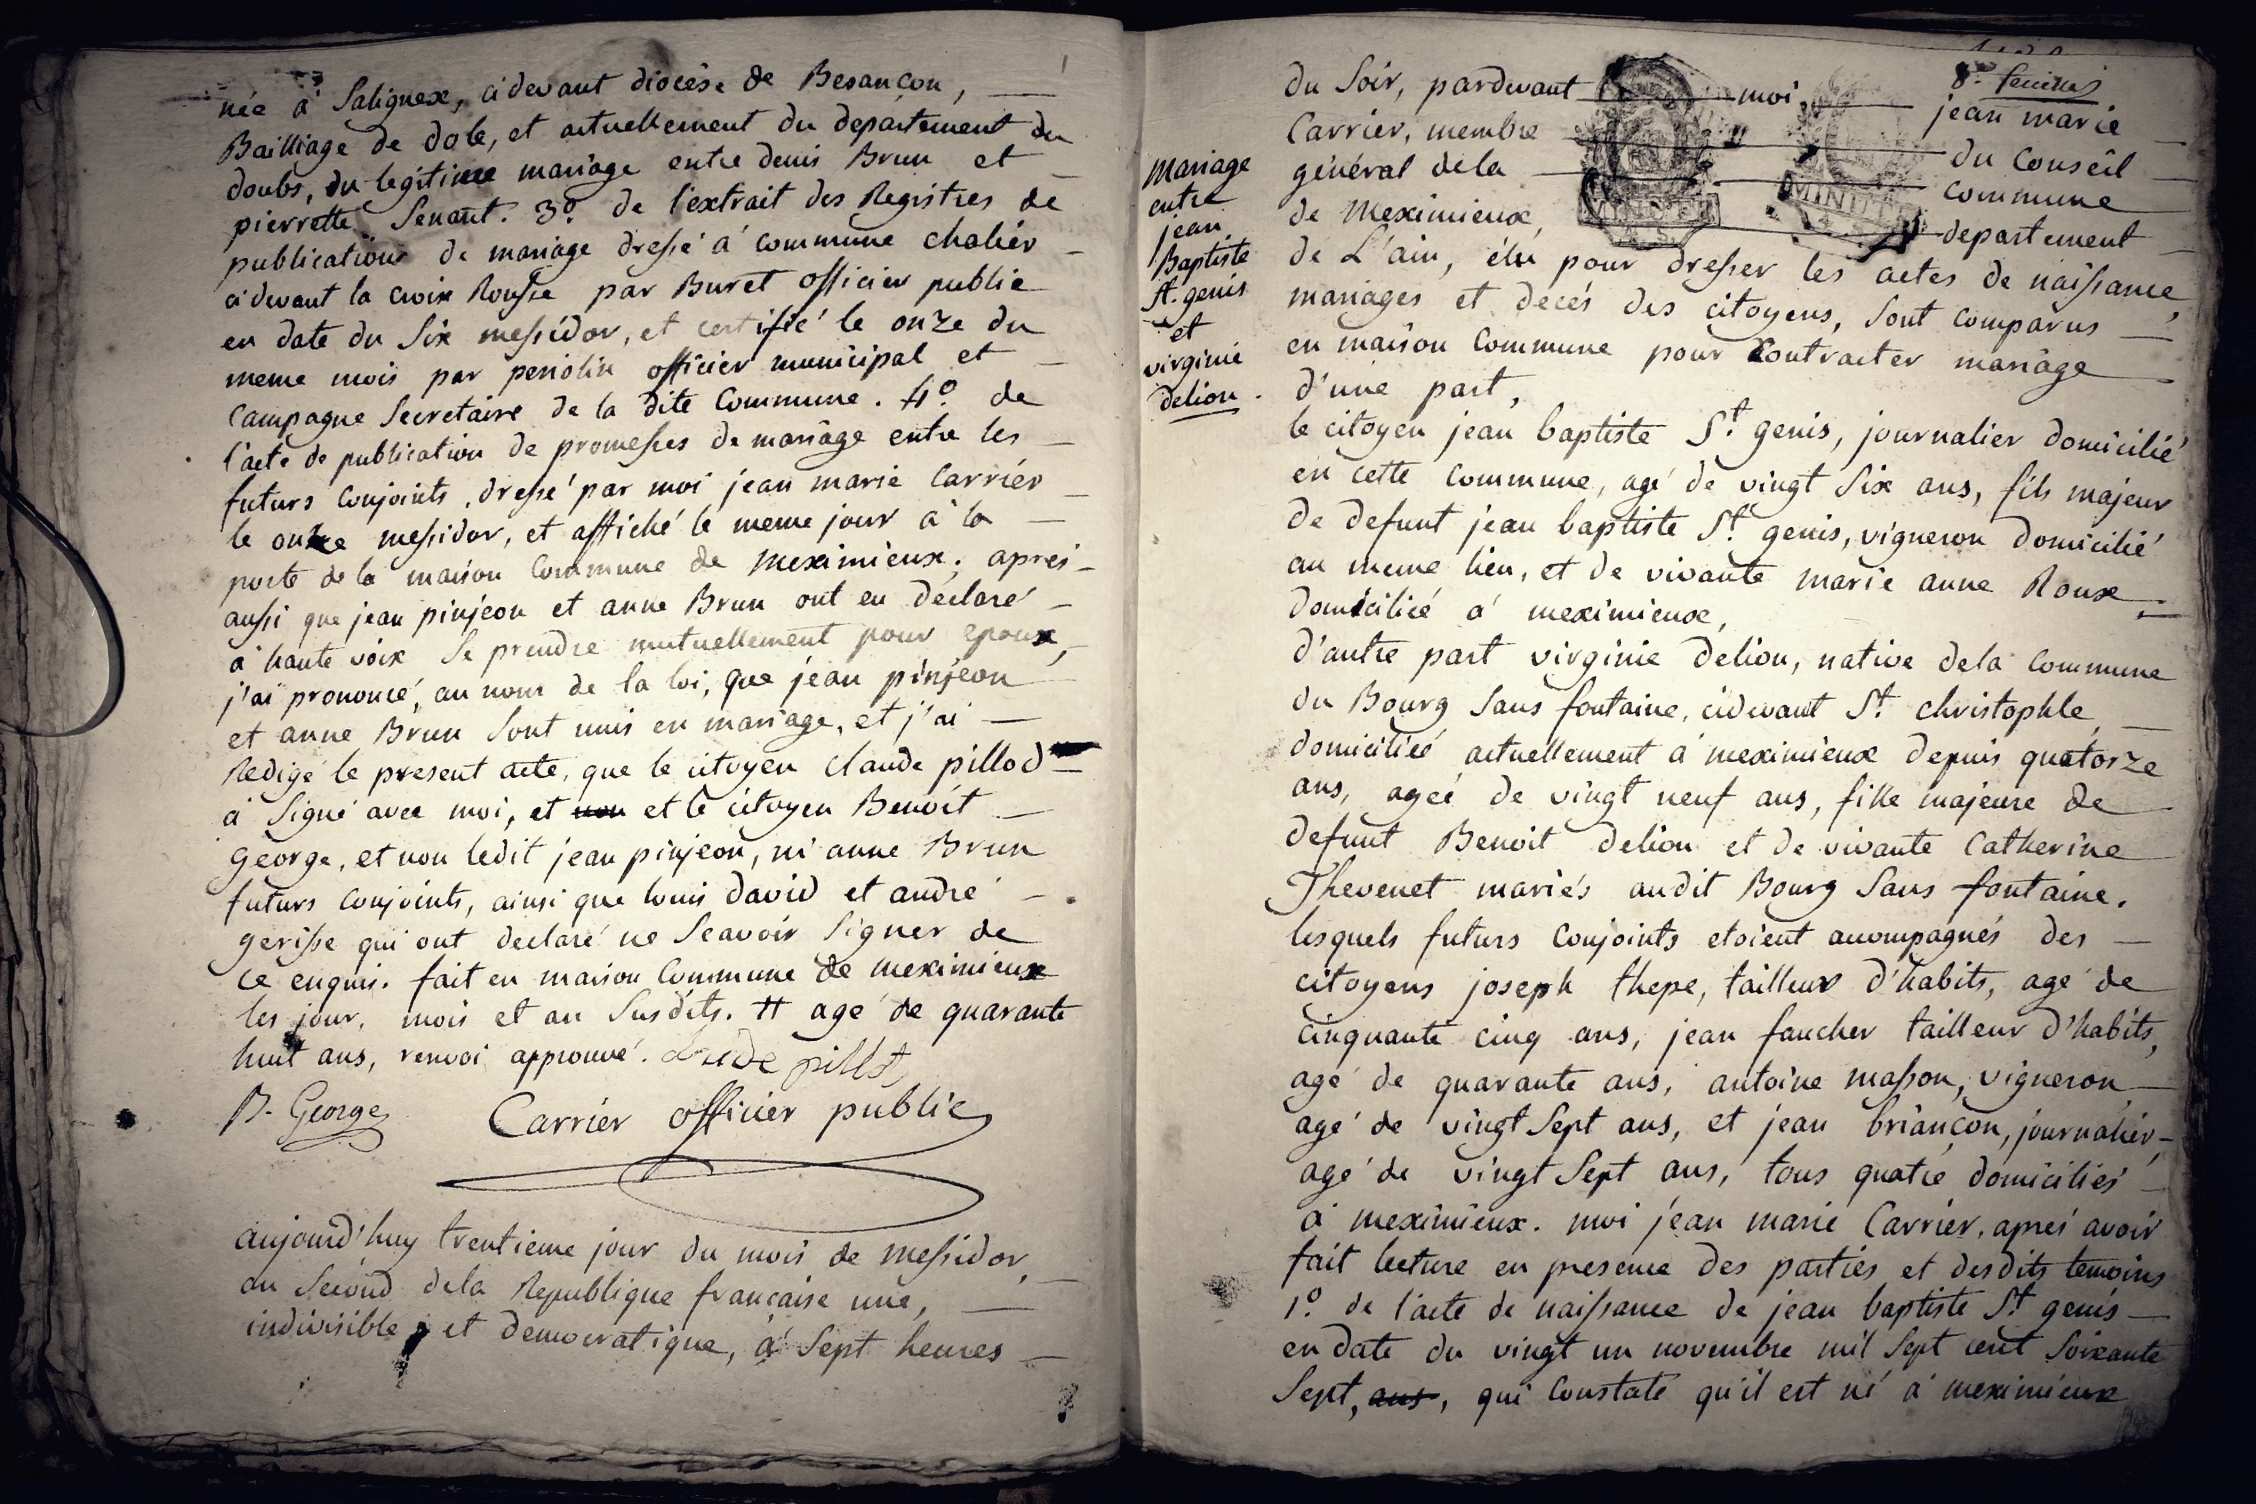 née à Salignex, cidevant diocèse de Besançon,
Bailliage de dole, et actuellement du département du
doubs, du legitime mariage entre denis Brun et
pierrette Senant. 3º. de l'extrait des Registres de
publication de mariage dressé à commune chalier
cidevant la croix Rousse par Buret officier public
en date du Six messidor, et certifié le onze du
meme mois par periolin officier municipal et
Campagne Secretaire de la dite Commune. 4º. de
l'acte de publication de promesses de mariage entre les
futurs conjoints, dressé par moi jean marie Carrier
le onze messidor, et affiché le meme jour à la
porte de la maison Commune de Meximieux; après
aussi que jean pinjeon et anne Brun ont eu déclaré
à haute voix Se prendre mutuellement pour epoux,
j'ai prononcé, au nom de la loi, que jean pinjeon
et anne Brun Sont unis en mariage, et j'ai
Redigé le present acte, que le citoyen claude pillod
à Signé avec moi, et non et le citoyen Benoit
George, et non ledit jean pinjeon, ni anne Brun
futurs conjoints, ainsi que louis david et andré
gerisse qui ont declaré ne Seavoir Signer de
ce enquis. fait en maison Commune de meximieux
les jour, mois et an Susdits. # agé de quarante
huit ans, renvoi approuvé. pillod
B. George Carrier officier public
aujourd'huy trentieme jour du mois de messidor,
an Second dela Republique française une,
indivisible et democratique, à Sept heures
8e. feuillet
mariage
entre
jean
Baptiste
St. genis
et
virginie
delion.
du Soir, pardevant moi, jean marie
Carrier, membre du Conseil
général dela commune
de Meximieux, departement
de L'ain, élu pour dresser les actes de naissance,
mariages et decés des citoyens, Sont comparus
en maison Commune pour Contracter mariage
d'une part,
le citoyen jean baptiste St. genis, journalier domicilié
en cette commune, agé de vingt Six ans, fils majeur
de defunt jean baptiste St. genis, vigneron domicilié
au meme lieu, et de vivante marie anne Roux
domiciliée à meximieux,
d'autre part virginie delion, native dela Commune
du Bourg Sans fontaine, cidevant St. christophle,
domiciliée actuellement à meximieux depuis quatorze
ans, ageé de vingt neuf ans, fille majeure de
defunt Benoit delion et de vivante Catherine
Thevenet mariés audit Bourg Sans fontaine.
lesquels futurs Conjoints etoient acompagnés des
citoyens joseph thepe, tailleur d'habits, agé de
cinquante cinq ans, jean faucher tailleur d'habits,
agé de quarante ans, antoine masson, vigneron,
agé de vingt Sept ans, et jean briancon, journalier,
agé de vingt Sept ans, tous quatre domiciliés
à meximieux. moi jean marie Carrier, après avoir
fait lecture en presence des parties et desdits temoins
1º. de l'acte de naissance de jean baptiste St. genis
en date du vingt un novembre mil Sept cent Soixante
Sept, ans, qui Constate qu'il est né à meximieux